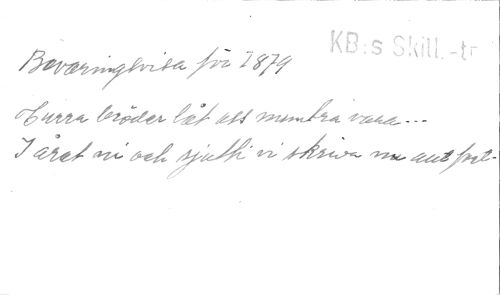 KB:s Skill.-tr
Beväringsvisa för 1879
Hurra bröder låt oss muntra vara...
I året ni och sjutti vi skriva nu